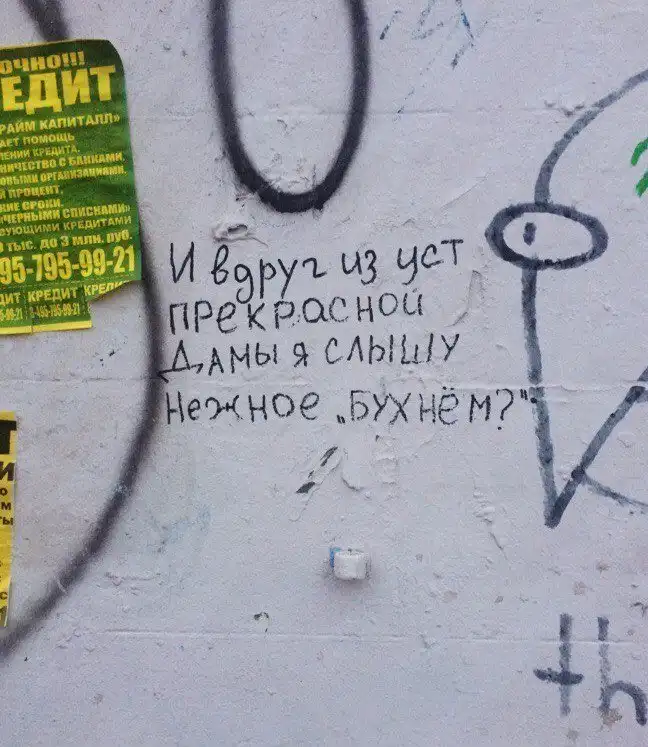 ОЧНО!!!
ЕДИТ
РАЙМ КАПИТАЛЛ»
АЕТ ПОМОЩЬ
ЕНИИ КРЕДИТА,
НИЧЕСТВО С БАНКАМИ,
ОВЫМИ ОРГАНИЗАЦИЯМИ.
Й ПРОЦЕНТ,
ИЕ СРОКИ.
ЧЕРНЫМИ СПИСКАМИ»
ВУЮЩИМИ КРЕДИТАМИ
ТЫС. ДО 3 МЛН. РУБ.
95-795-99-21
ИТ КРЕДИТ КРЕДИ
И вдруг из уст
прекрасной
дамы я слышу
нежное „БУХНЁМ?"
th